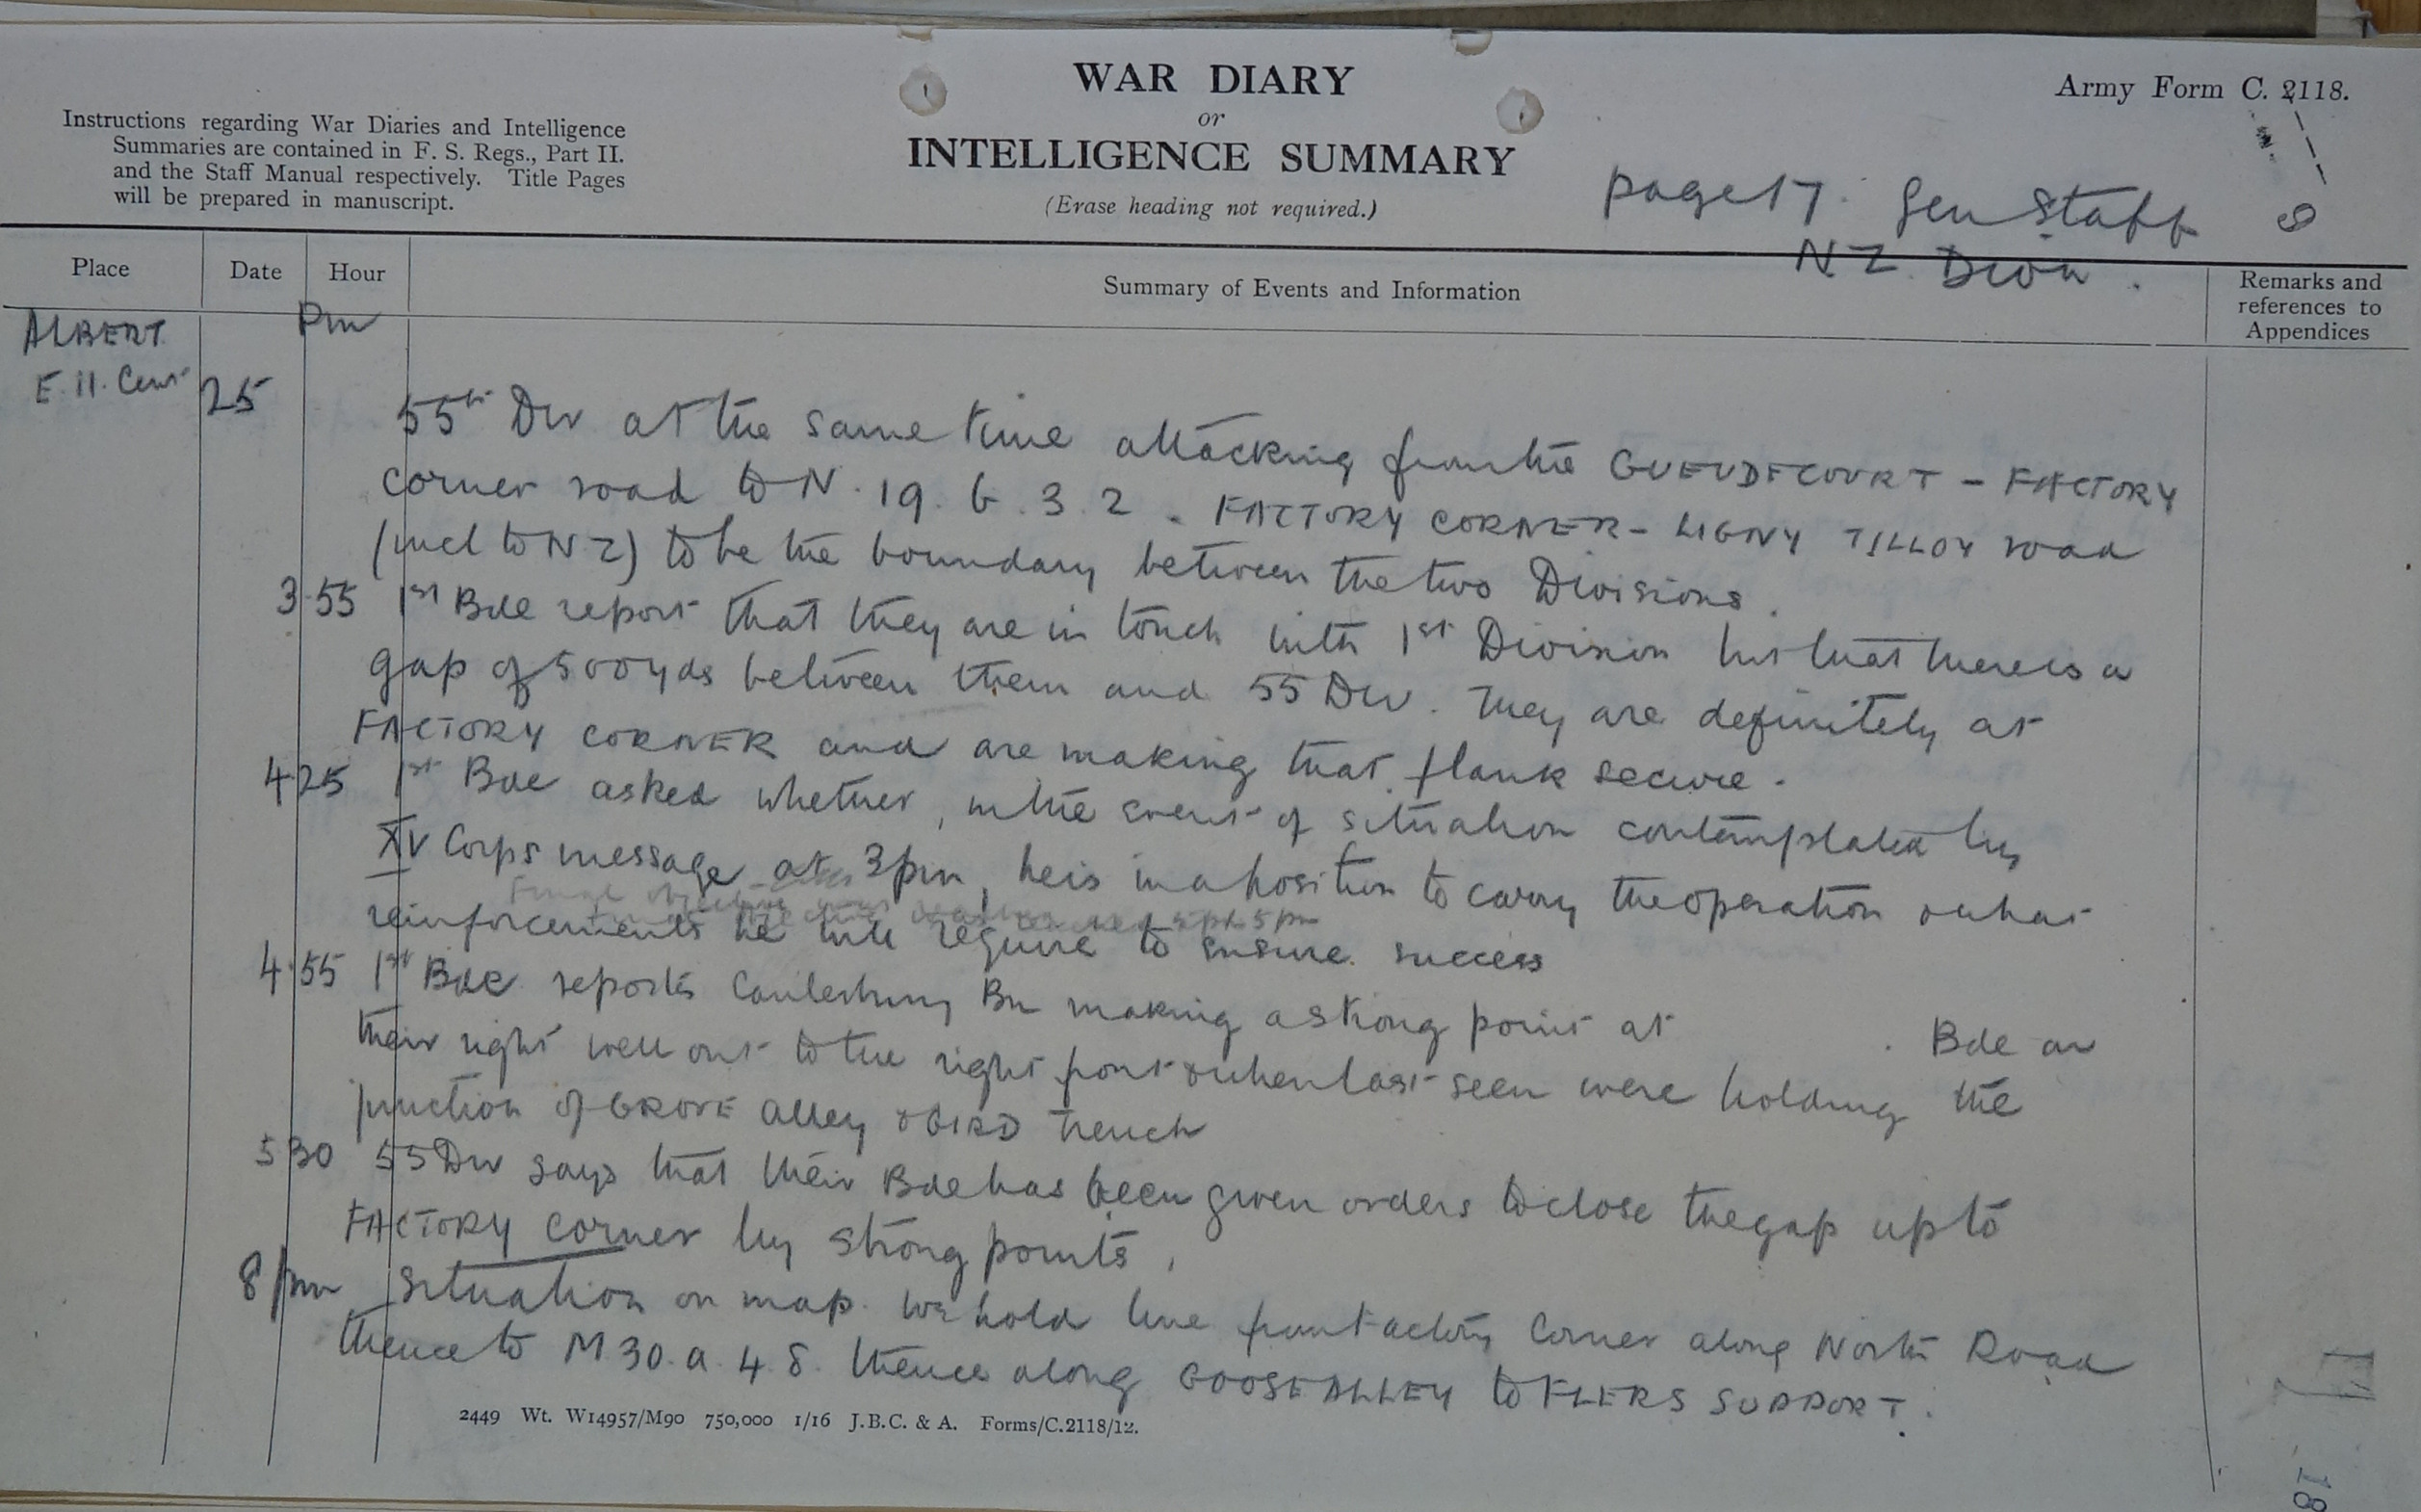 WAR DIARY
or
INTELLIGENCE SUMMARY
(Erase heading not required.)
Army Form C. 2118.
Instructions regarding War Diaries and Intelligence
Summaries are contained in F. S. Regs., Part II.
and the Staff Manual respectively. Title Pages
will be prepared in manuscript.
page 17. Gen Staff
N Z. Divn.
Place Date Hour Summary of Events and Information Remarks and
references to
Appendices
ALBERT Pm
E. 11. Cent 25
55th Div at the same time attacking from the GUEUDECOURT - FACTORY
corner road to N. 19. b. 3. 2. FACTORY CORNER - LIGNY TILLOY road
(incl to N Z) to be the boundary between the two Divisions.
3.55 1st Bde report that they are in touch with 1st Division but that there is a
gap of 500 yds between them and 55 Div. They are definitely at
FACTORY CORNER and are making that flank secure.
4.25 1st Bde asked whether, in the event of situation contemplated by
XV Corps message at 3pm, he is in a position to carry the operation & what
Final objective was reached 5pm
reinforcements he will require to ensure success
4.55 1st Bde reports Canterbury Bn making a strong point at . Bde on
their right well out to the right front & when last seen were holding the
junction of GROVE alley & GIRD trench
5 30 55 Div says that their Bde has been given orders to close the gap up to
FACTORY corner by strong points.
8 pm Situation on map. We hold line from Factory Corner along North Road
thence to M. 30. a. 4. 8. thence along GOOSE ALLEY to FLERS SUPPORT.
2449 Wt. W14957/M90 750,000 1/16 J.B.C. & A. Forms/C.2118/12.
18